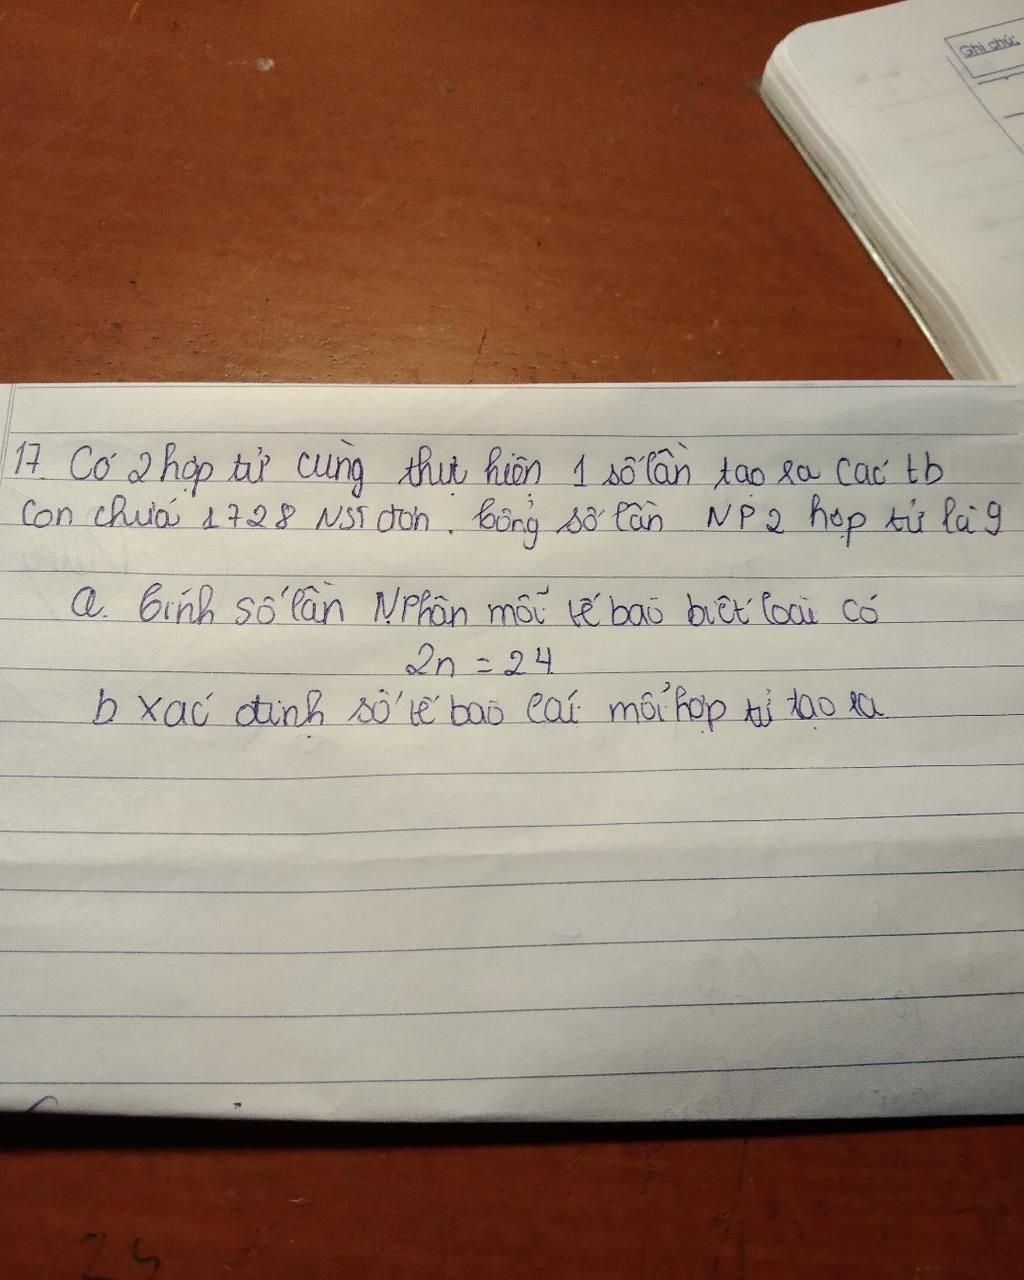 Ghi chú:
17. Có 2 hợp tử cùng thực hiện 1 số lần tạo ra các tb
con chứa 1728 NST đơn. Tổng số lần NP 2 hợp tử là 9
a. Tính số lần NPhân mỗi tế bào biết loài có
2n = 24
b xác định số tế bào cái mỗi hợp tử tạo ra